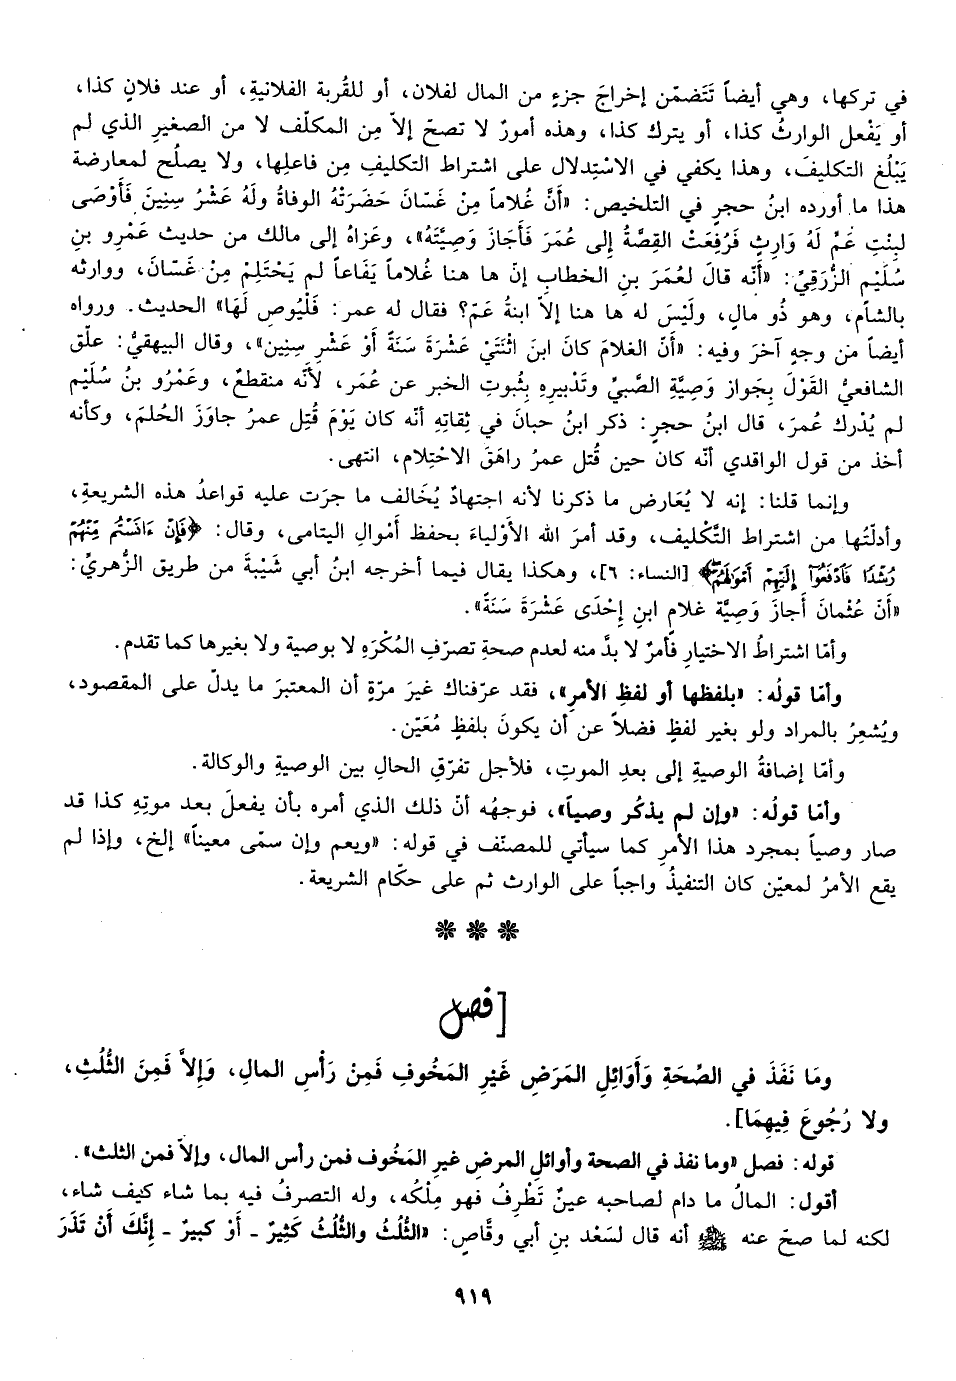 في تركها، وهي أيضاً تَتَضمّن إخراجَ جزءٍ من المال لفلان، أو للقُربة الفلانيةِ، أو عند فلانٍ كذا،
أو يَفْعل الوارثُ كذا، أو يترك كذا، وهذه أمورٌ لا تصحّ إلاّ مِن المكلّف لا من الصغيرِ الذي لم
يَبْلُغ التكليفَ، وهذا يكفي في الاسْتِدلال على اشتراط التكليفِ مِن فاعلِها، ولا يصلُح لمعارضة
هذا ما أورده ابنُ حجرٍ في التلخيص: «أَنَّ غُلاماً مِنْ غَسَّانَ حَضَرَتْهُ الوفاةُ ولَهُ عَشْرُ سِنِينَ فَأَوْصَى
لبِنْتِ عَمٍّ لَهُ وَارِثٍ فَرُفِعَتْ القِصَّةُ إلى عُمَرَ فَأَجَازَ وَصِيَّتَهُ»، وعَزاهُ إلى مالك من حديث عَمْرِو بنِ
سُلَيْم الزُّرَقِيِّ: «أَنّه قالَ لعُمَرَ بنِ الخطاب إنّ ها هنا غُلاماً يَفَاعاً لم يَحْتَلِمْ مِنْ غَسّانَ، ووارثه
بالشأم، وهو ذُو مالٍ، ولَيْسَ له ها هنا إلاّ ابنةُ عَمّ؟ فقال له عمر: فَلْيُوصِ لَهَا» الحديث. ورواه
أيضاً من وجهٍ آخرَ وفيه: «أَنّ الغلامَ كانَ ابنَ اثْنَتَيْ عَشْرَةَ سَنَةً أوْ عَشْرِ سِنِين»، وقال البيهقيُّ: علّق
الشافعيُّ القَوْلَ بِجوازِ وَصِيَّةِ الصَّبيِّ وتَدْبيرِهِ بِثُبوتِ الخبر عن عُمَر، لأنَّه منقطعٌ، وعَمْرُو بنُ سُلَيْم
لم يُدْرك عُمرَ، قال ابنُ حجرٍ: ذكر ابنُ حبانَ في ثِقاتِهِ أنّه كان يَوْمَ قُتِل عمرُ جاوَزَ الحُلمَ، وكأنه
أخذ من قول الواقدي أنّه كان حين قُتل عمرُ راهَقَ الاحْتِلام، انتهى.
وإنما قلنا: إنه لا يُعَارض ما ذكرنا لأنه اجتهادٌ يُخَالف ما جرَت عليه قواعدُ هذه الشريعةِ،
وأدلّتُها من اشتراط التَّكْليف، وقد أمرَ الله الأَوْلياءَ بحفظ أمْوالِ اليتامى، وقال: ﴿فَإِنْ ءَانَسْتُم مِّنْهُمْ
رُشْدًا فَادْفَعُوٓا إِلَيْهِمْ أَمْوَٰلَهُمْ﴾ [النساء: ٦]، وهكذا يقال فيما أخرجه ابنُ أبي شَيْبَةَ من طريق الزُّهريِّ:
«أَنّ عُثْمانَ أَجازَ وَصِيَّة غلامٍ ابنِ إِحْدَى عَشْرَةَ سَنَةً».
وأمّا اشتراطُ الاختيارِ فأمرٌ لا بدَّ منه لعدم صحةِ تصرّفِ المُكْرَهِ لا بوصية ولا بغيرها كما تقدم.
وأمّا قولُه: «بلفظِها أو لفظِ الأمرِ»، فقد عرّفناك غيرَ مرّةٍ أن المعتبرَ ما يدلّ على المقصود،
ويُشعِرُ بالمراد ولو بغير لفظٍ فضلاً عن أن يكونَ بلفظٍ مُعَيّن.
وأمّا إضافةُ الوصيةِ إلى بعدِ الموتِ، فلأجل تفرّقِ الحالِ بين الوصيةِ والوكالة.
وأمّا قولُه: «وإن لم يذكُر وصياً»، فوجهُه أنّ ذلك الذي أمره بأن يفعلَ بعد موتِه كذا قد
صار وصياً بمجرد هذا الأمرِ كما سيأتي للمصنّف في قوله: «ويعم وإن سمّى معيناً» إلخ، وإذا لم
يقع الأمرُ لمعيّن كان التنفيذُ واجباً على الوارث ثم على حكّام الشريعة.
[فصل
ومَا نَفَذَ في الصِّحَةِ وَأَوَائِلِ المَرَضِ غَيْرِ المَخُوفِ فَمِنْ رَأْسِ المالِ، وَإِلاَّ فَمِنَ الثُّلُثِ،
ولا رُجُوعَ فِيهِمَا].
قوله: فصل «وما نفذ في الصحة وأوائلِ المرضِ غيرِ المَخُوف فمن رأس المال، وإلاّ فمن الثلث».
أقول: المالُ ما دام لصاحبه عينٌ تَطْرِفُ فهو مِلْكُه، وله التصرفُ فيه بما شاء كيف شاء،
لكنه لما صحّ عنه ﷺ أنه قال لسَعْد بنِ أبي وقَّاصٍ: «الثُّلُثُ والثُّلُثُ كَثِيْرٌ - أَوْ كبيرٌ - إِنَّكَ أَنْ تَذَرَ
٩١٩